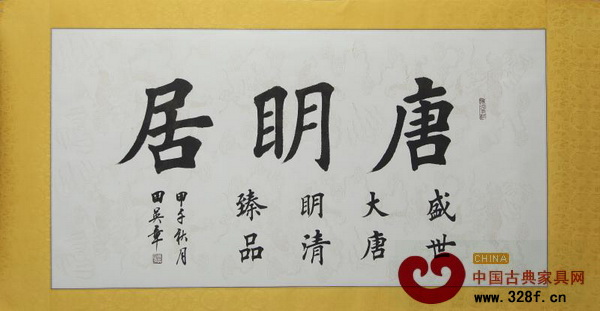 唐明居
盛世
大唐
明清
臻品
甲午秋月
田英章
CHINA
中国古典家具网
www.328f.cn